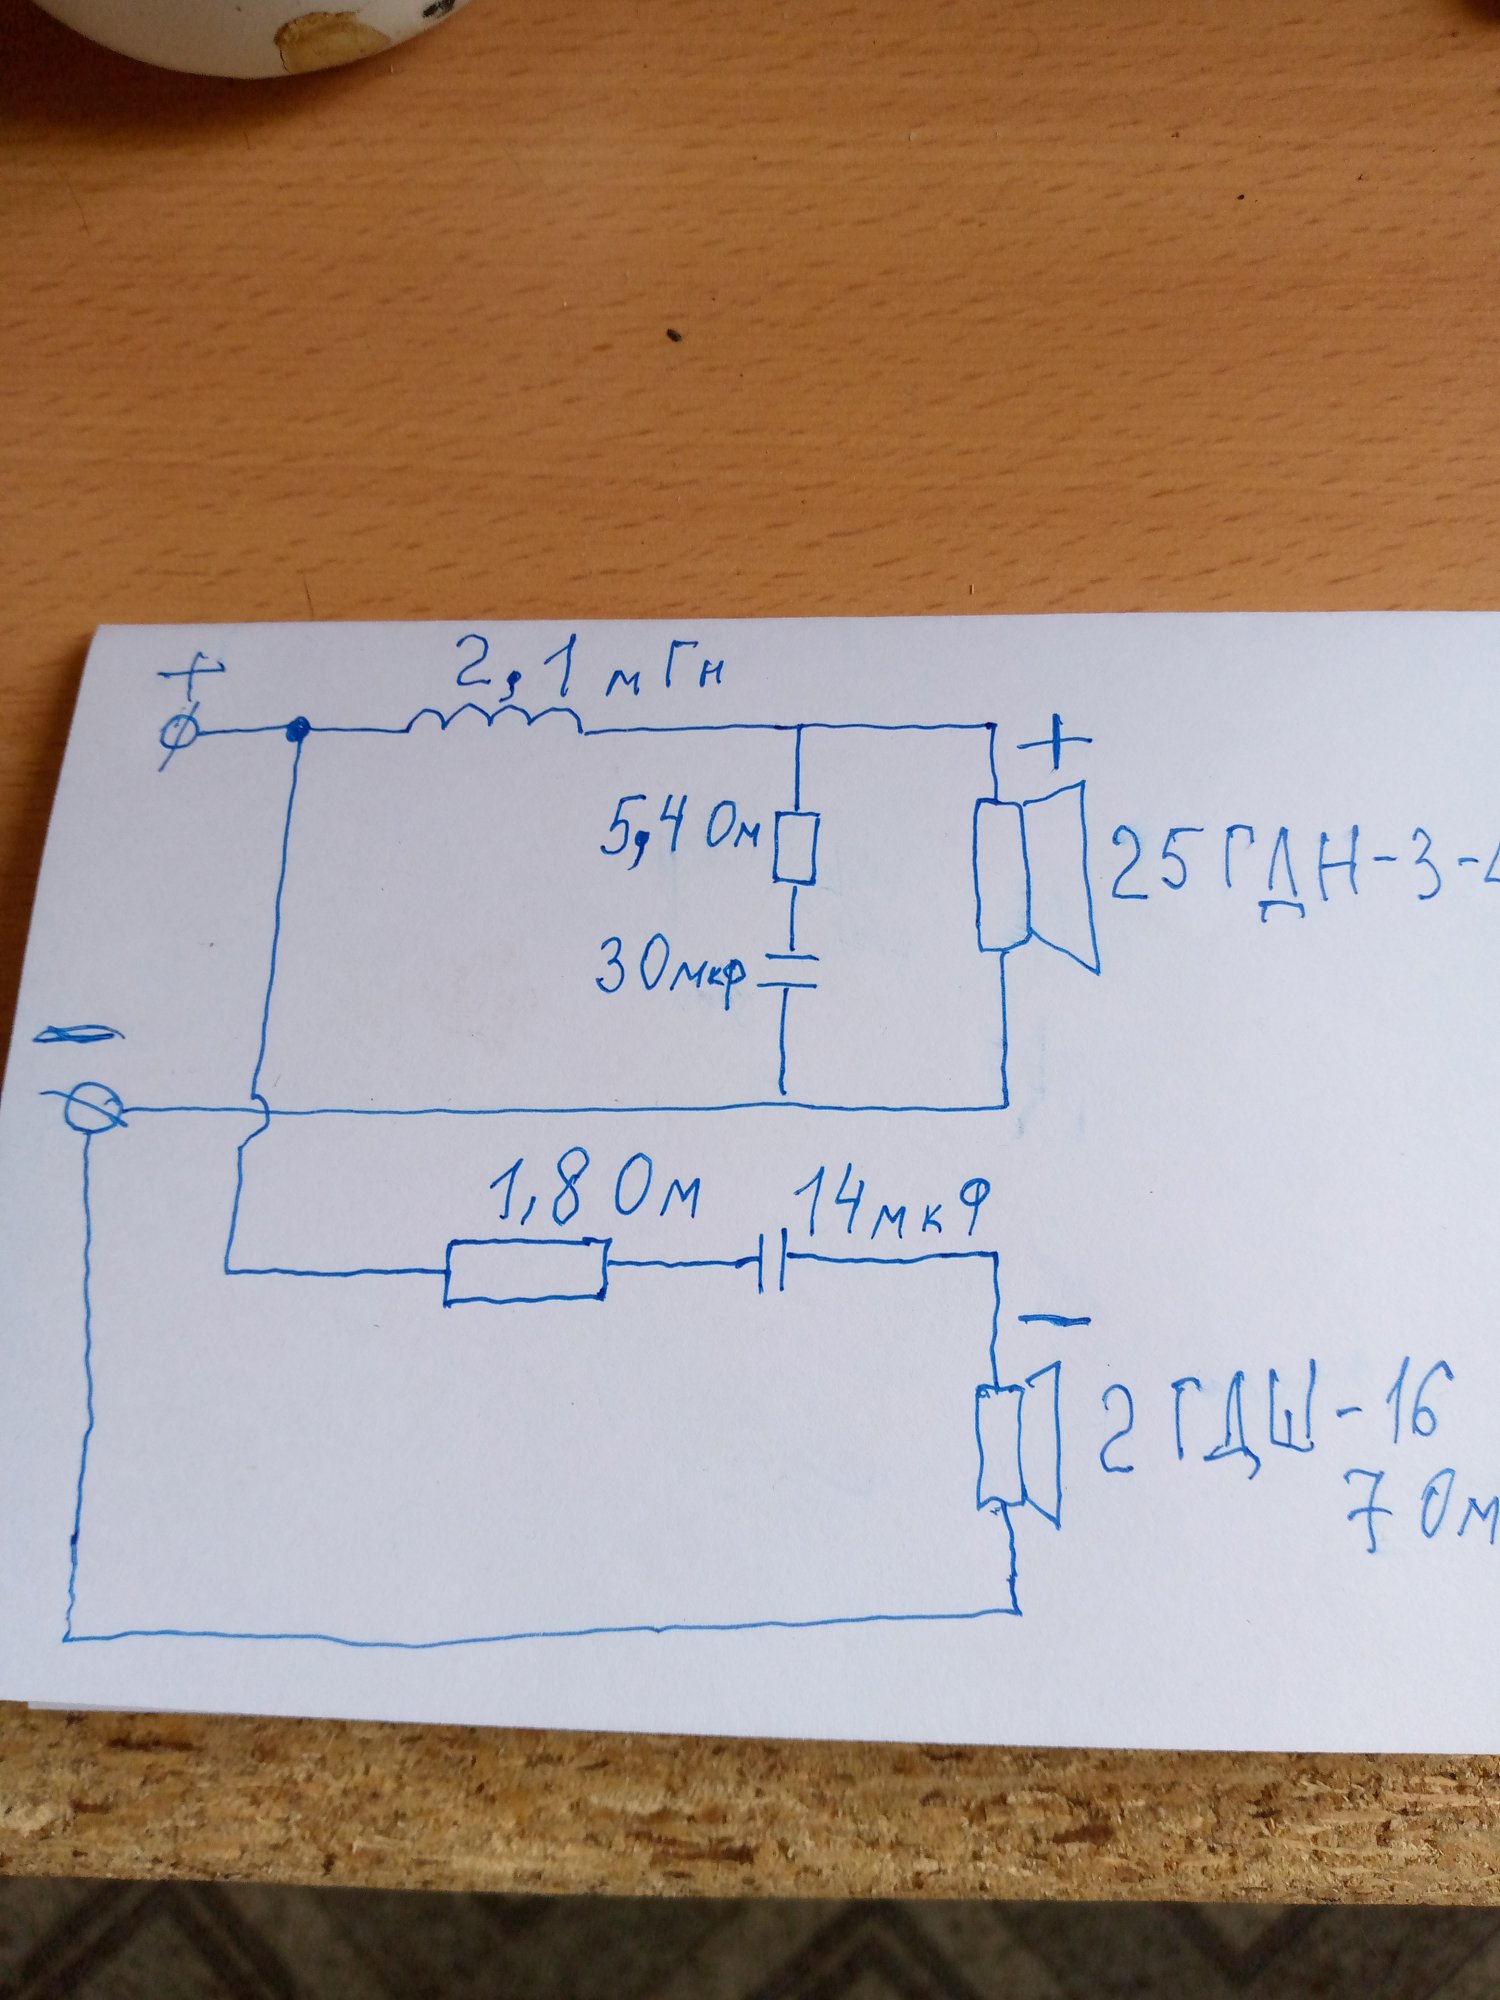 +
2,1 мГн
+
5,4 Ом
25ГДН-3-4
30мкф
−
1,8 Ом
14мкФ
−
2 ГДШ-16
7 Ом